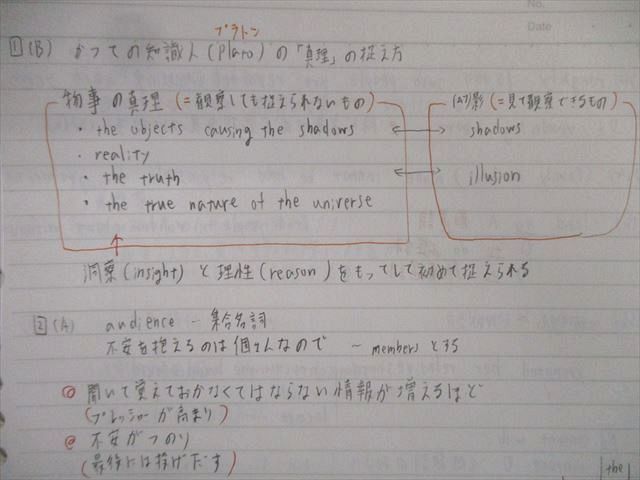 No.
Date
プラトン
1 (B) かつての知識人(Plato)の「真理」の捉え方
物事の真理 (=観察しても捉えられないもの)
影 (=見て観察できるもの)
・ the objects causing the shadows ↔ shadows
・ reality
・ the truth ↔ illusion
・ the true nature of the universe
洞察(insight) と理性(reason)をもってして初めて捉えられる
2 (A) audience - 集合名詞
不安を抱えるのは個々人なので ~ members とする
聞いて覚えておかなくてはならない情報が増えるほど
(プレッシャーが高まり)
不安がつのり
(最終には投げだす)
the